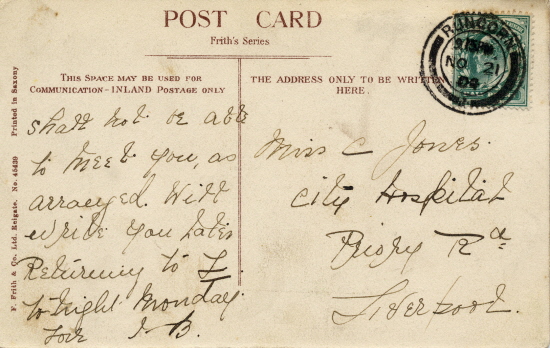 POST CARD
Frith's Series
THIS SPACE MAY BE USED FOR
COMMUNICATION - INLAND POSTAGE ONLY
THE ADDRESS ONLY TO BE WRITTEN
HERE.
RUNCORN
NO 21
Shall not be able
to meet you, as
arranged. Will
write you later
Returning to L
to night Monday.
Love
Miss C Jones.
City Hospital
Priory Rd
Liverpool.
F. Frith & Co. Ltd. Reigate. No. 45439 Printed in Saxony